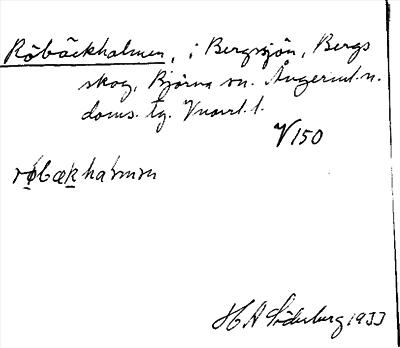 Röbäckholmen, i Bergssjön, Bergs
skog, Björna sn. Ångerml. n.
doms. tg. Vnorrl. l.
V150
røbækhaɫmɛn
H A Söderberg 1933